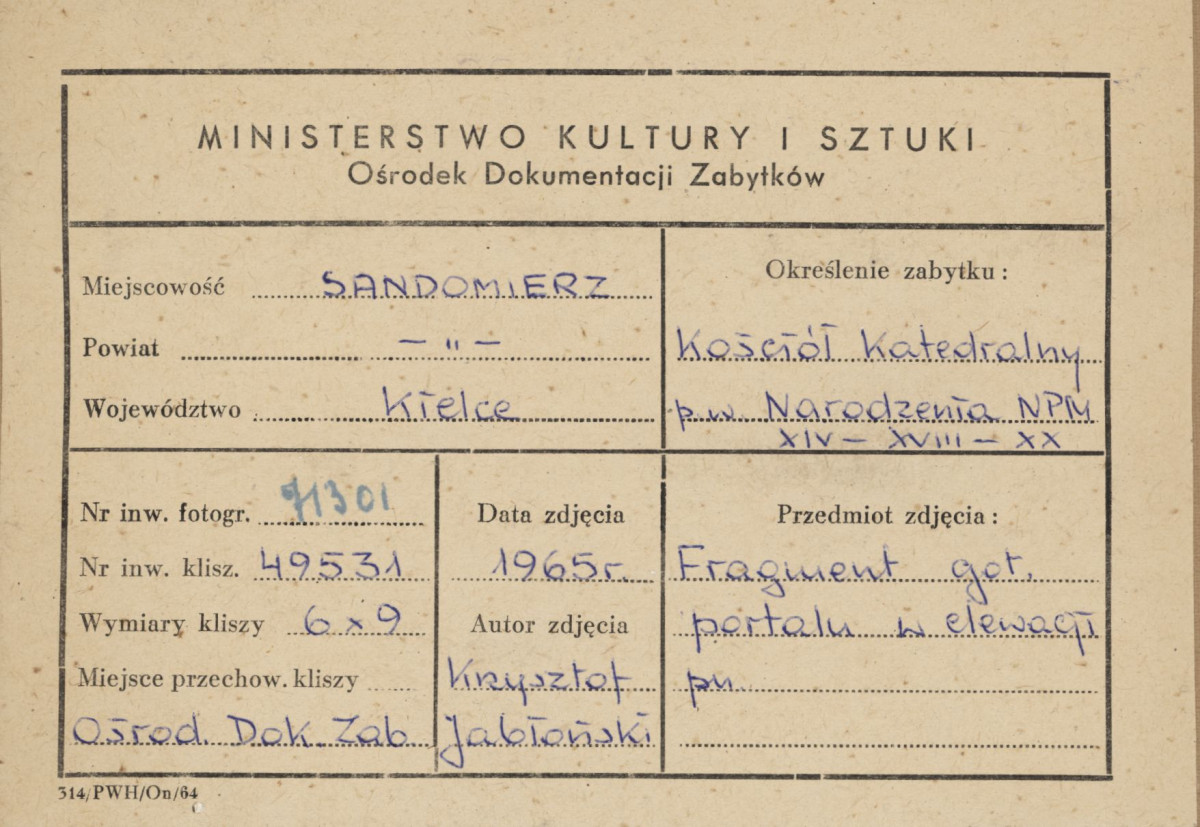 MINISTERSTWO KULTURY I SZTUKI
Ośrodek Dokumentacji Zabytków
Miejscowość SANDOMIERZ
Powiat — " —
Województwo Kielce
Określenie zabytku:
Kościół Katedralny
p.w. Narodzenia NPM
XIV – XVIII – XX
Nr inw. fotogr. 71301
Nr inw. klisz. 49531
Wymiary kliszy 6 x 9
Miejsce przechow. kliszy
Ośrod. Dok. Zab
Data zdjęcia
1965r.
Autor zdjęcia
Krzysztof
Jabłoński
Przedmiot zdjęcia:
Fragment got.
portalu w elewacji
pn.
314/PWH/On/64